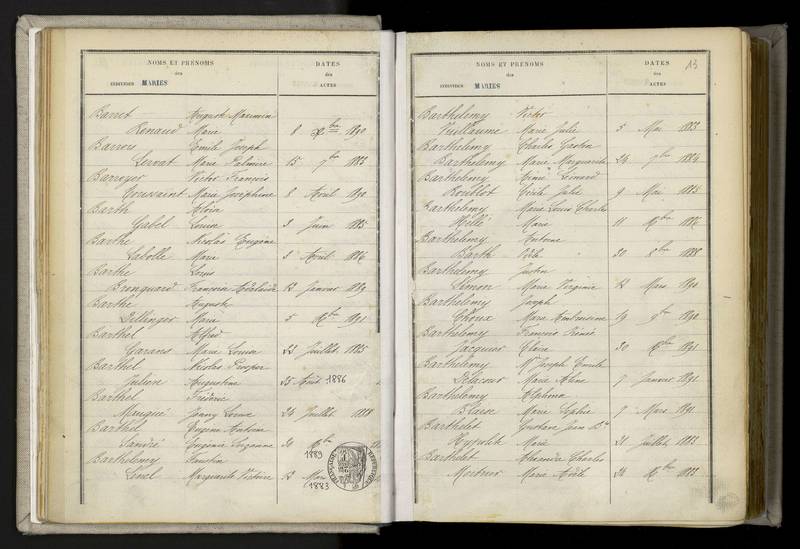 NOMS ET PRÉNOMS
des
INDIVIDUS MARIÉS
DATES
des
ACTES
Barret Auguste Maximin
Renaud Marie 8 Xbre 1890
Barreu Emile Joseph
Servat Marie Palmire 15 7bre 1883
Barroyer Victor François
Toussaint Marie Joséphine 8 Avril 1890
Barth
Gabel Louise 3 Juin 1885
Barthe Nicolas Eugène
Labolle Marie 3 Avril 1886
Barthe Louis
Bronquard Françoise Adélaïde 12 Janvier 1889
Barthe Auguste
Dellinger Marie 5 Xbre 1891
Barthel Alfred
Carans Marie Louise 22 Juillet 1885
Barthel Nicolas Prosper
Julien Augustine 25 Août 1886
Barthel Frédéric
Mangué Jenny Louise 24 Juillet 1888
Barthel Eugène Antoine
Eugénie Suzanne Xbre 1889
Barthelemy Faustin
Lenel Marguerite Victoire 12 Mai 1883
13
NOMS ET PRÉNOMS
des
INDIVIDUS MARIÉS
DATES
des
ACTES
Barthelemy Victor
Vuillaume Marie Julie 5 Mai 1883
Barthelemy Charles Gaston
Barthelemy Marie Marguerite 24 7bre 1884
Barthelemy Aimé Léonard
Rouillot Cécile Julie 9 Mai 1885
Barthelemy Marie Louis Charles
Hellé Marie 11 Xbre 1886
Barthelemy Antoine
Barth Odile 30 8bre 1888
Barthelemy Justin
Simon Marie Virginie 12 Mars 1890
Barthelemy Joseph
Choux Marie Ambroisine 19 9bre 1890
Barthelemy François Aimé
Jacquier Claire 30 Xbre 1891
Barthelemy Me Joseph Emile
Delacour Marie Aline 7 Janvier 1891
Barthelemy Alphonse
Blaise Marie Sophie 7 Mars 1891
Barthelet Gustave Jean Bte
Hypolite Marie 21 Juillet 1883
Barthelet Alexandre Charles
Marie Adèle 24 Xbre 1883